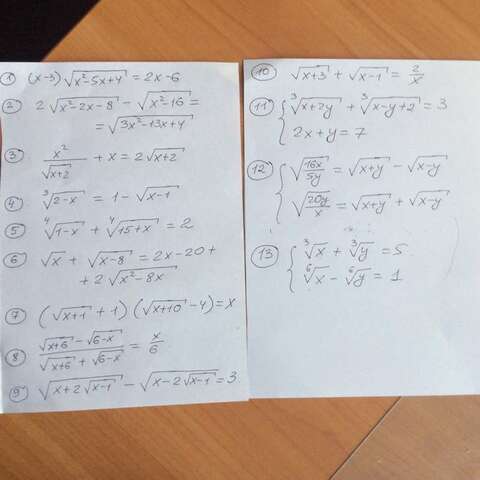 1) (x-3)√(x²-5x+4) = 2x-6
2) 2√(x²-2x-8) - √(x²-16) =
= √(3x²-13x+4)
3) x²/√(x+2) + x = 2√(x+2)
4) ³√(2-x) = 1 - √(x-1)
5) ⁴√(1-x) + ⁴√(15+x) = 2
6) √x + √(x-8) = 2x-20 +
+ 2√(x²-8x)
7) (√(x+1) + 1)(√(x+10) - 4) = x
8) (√(x+6) - √(6-x))/(√(x+6) + √(6-x)) = x/6
9) √(x+2√(x-1)) - √(x-2√(x-1)) = 3
10) √(x+3) + √(x-1) = 2/x
11) { ³√(x+2y) + ³√(x-y+2) = 3
2x+y=7
12) { √(16x/5y) = √(x+y) - √(x-y)
√(20y/x) = √(x+y) + √(x-y)
13) { ³√x + ³√y = 5
⁶√x - ⁶√y = 1